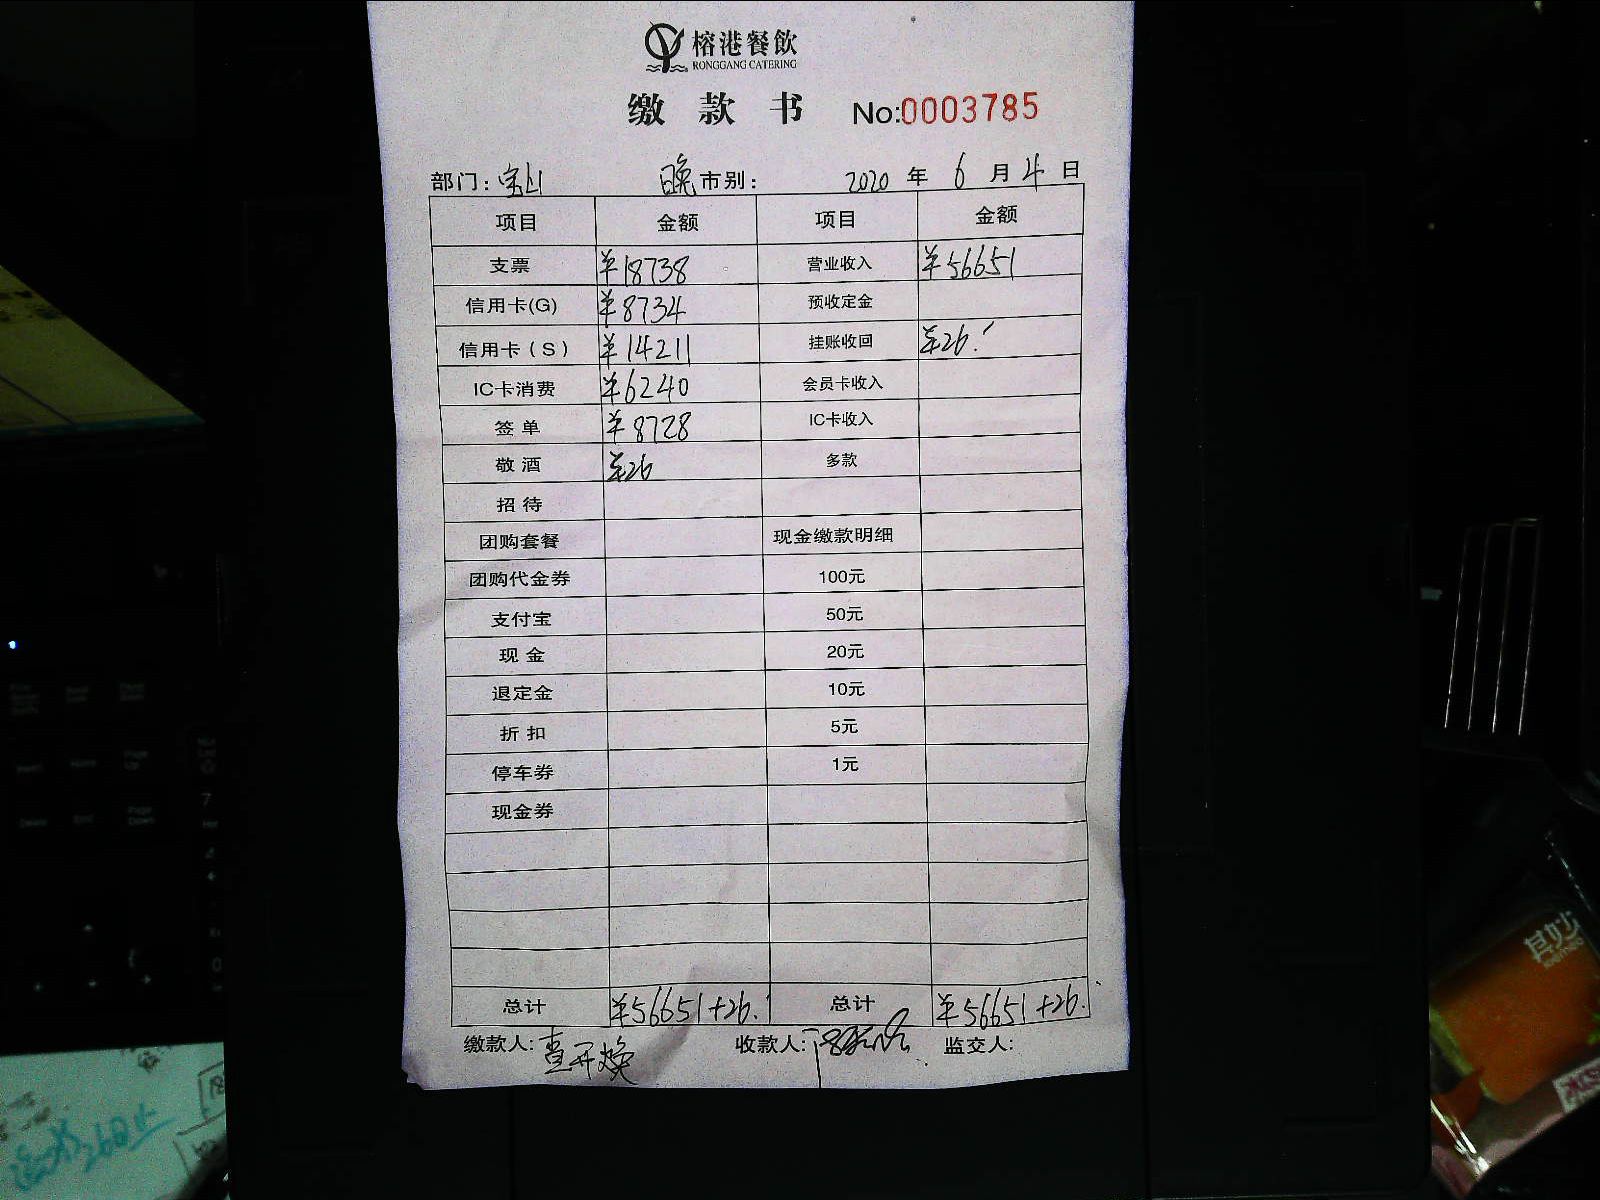 榕港餐飲
RONGGANG CATERING
缴款书 No:0003785
部门：宝山 晚市别： 2020年6月4日
项目 金额 项目 金额
支票 ¥18738 营业收入 ¥56651
信用卡(G) ¥8734 预收定金
信用卡（S） ¥14211 挂账收回 ¥26.
IC卡消费 ¥6240 会员卡收入
签单 ¥8728 IC卡收入
敬酒 ¥26 多款
招待
团购套餐 现金缴款明细
团购代金券 100元
支付宝 50元
现金 20元
退定金 10元
折扣 5元
停车券 1元
现金券
总计 ¥56651+26. 总计 ¥56651+26.
缴款人：查开焕 收款人： 监交人：
其妙